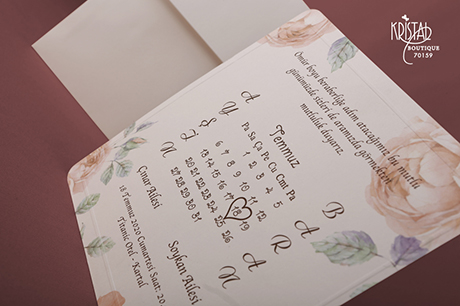 KRİSTAL
BOUTIQUE
70159
Ömür boyu beraberliğe adım atacağımız bu mutlu
günümüzde sizleri de aramızda görmekten
mutluluk duyarız.
AYŞIN
BARAN
Temmuz
Pa Sa Ça Pe Cu Cmt Pa
6 7 8 9 10 11 12
13 14 15 16 17 18 19
20 21 22 23 24 25 26
27 28 29 30 31
Çınar Ailesi
Soykan Ailesi
18 Temmuz 2020 Cumartesi Saat:
Titanic Otel - Kartal